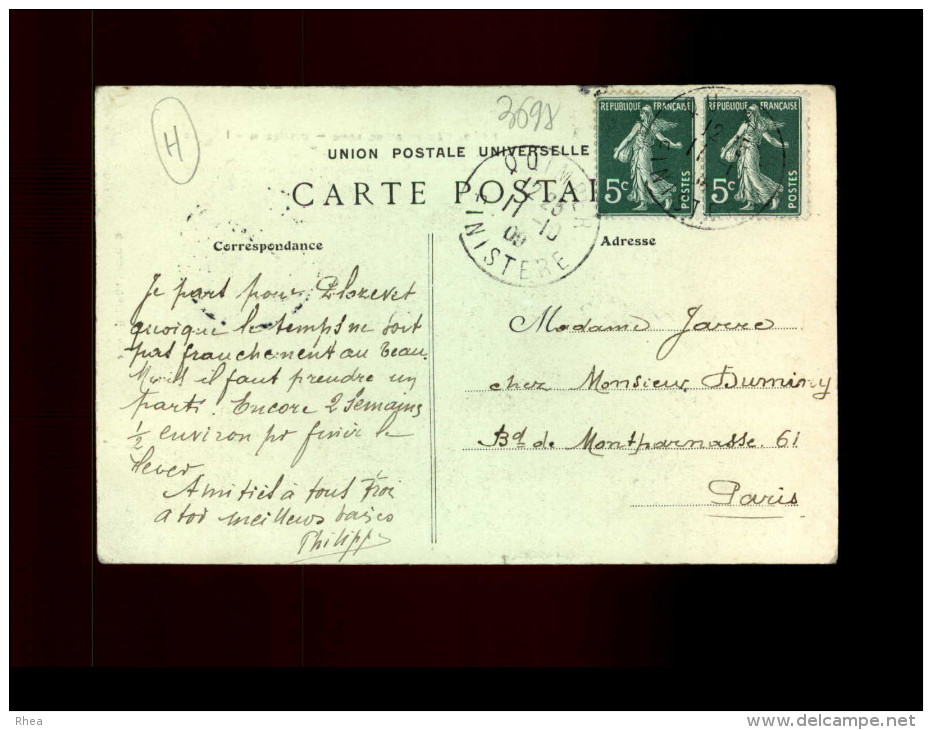 H
3698
UNION POSTALE UNIVERSELLE
CARTE POSTA
REPUBLIQUE FRANÇAISE
5c
POSTES
REPUBLIQUE FRANÇAISE
5c
POSTES
QUIMPER
12 25
11 -10
09
FINISTERE
Correspondance
Adresse
Je part pour Plozevet
quoique le temps ne soit
pas franchement au beau
Mais il faut prendre un
parti. Encore 2 Semaines
1/2 environ pr finir le
Amitiés à tous trois
a toi meilleurs baisers
Philippe
Madame Jarre
chez Monsieur Duminy
Bd de Montparnasse. 61
Paris
Rhea
www.delcampe.net